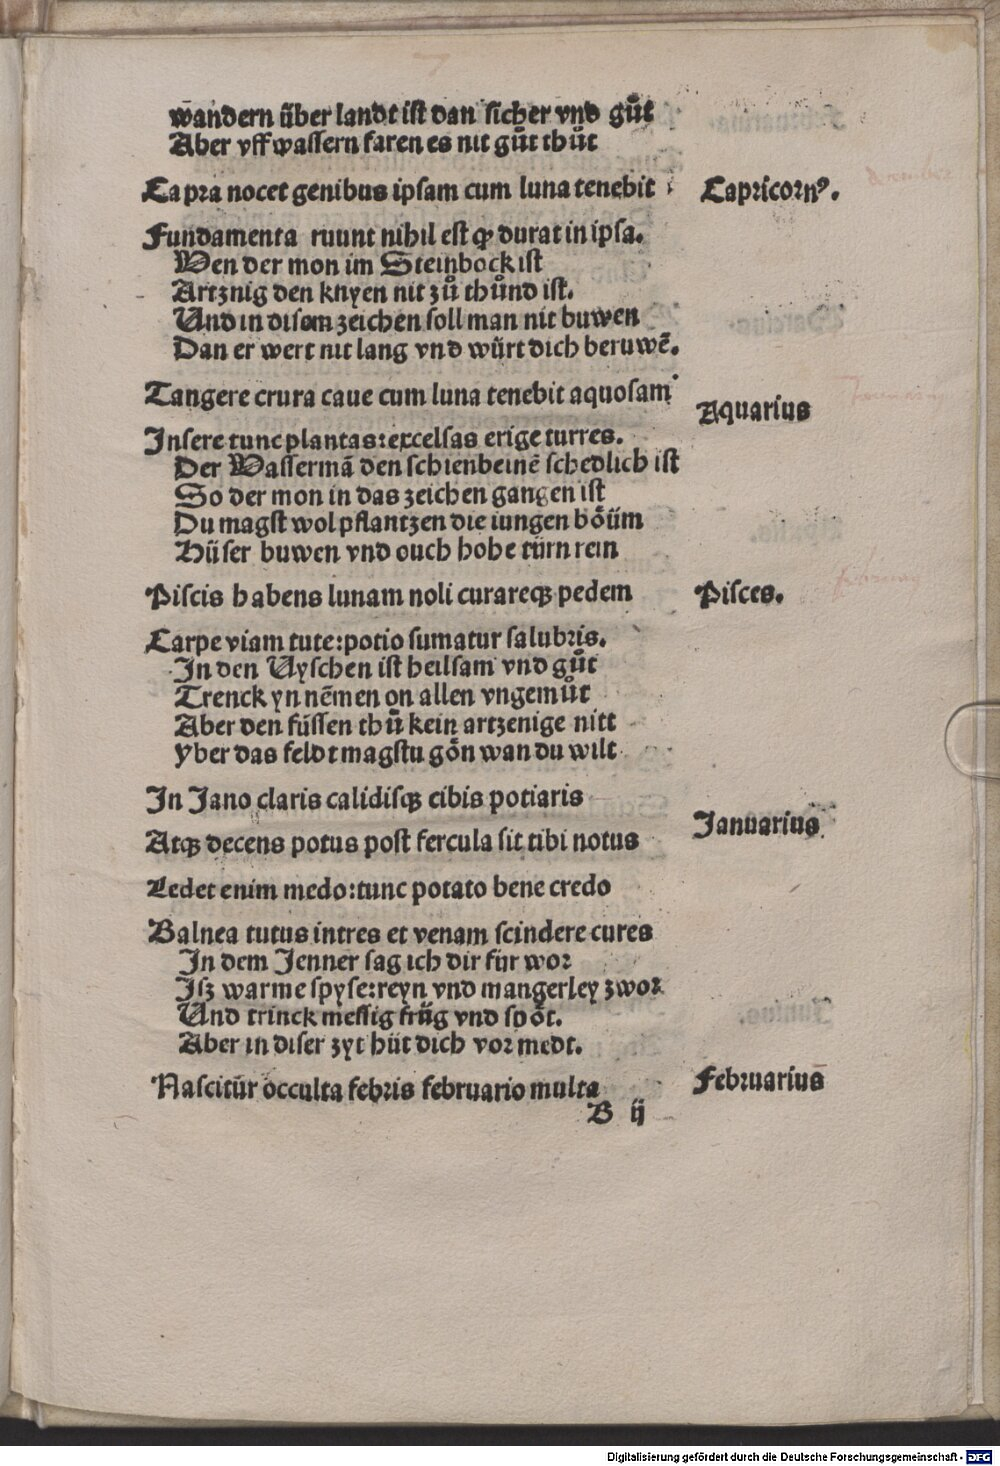 wandern über landt ist dan sicher vnd gůt
Aber vff wassern faren es nit gůt thůt
Capra nocet genibus ipsam cum luna tenebit
Capricornꝰ.
Fundamenta ruunt nihil est ꝙ durat in ipsa.
Wen der mon im Steinbock ist
Artznig den knyen nit zů thůnd ist.
Und in disem zeichen soll man nit buwen
Dan er wert nit lang vnd würt dich beruwē.
Tangere crura caue cum luna tenebit aquosam
Aquarius
Insere tunc plantas: excelsas erige turres.
Der Wassermā den schienbeinē schedlich ist
So der mon in das zeichen gangen ist
Du magst wol pflantzen die iungen böüm
Hüser buwen vnd ouch hohe türn rein
Piscis habens lunam noli curareqꝫ pedem
Pisces.
Carpe viam tute: potio sumatur salubris.
In den Vyschen ist heilsam vnd gůt
Trenck yn nēmen on allen vngemůt
Aber den füssen thů kein artzenige nitt
Yber das feldt magstu gön wan du wilt
In Jano claris calidisqꝫ cibis potiaris
Januarius
Atqꝫ decens potus post fercula sit tibi notus
Ledet enim medo: tunc potato bene credo
Balnea tutus intres et venam scindere cures
In dem Jenner sag ich dir für wor
Isz warme spyse: reyn vnd mangerley zwor
Und trinck messig früg vnd spöt.
Aber in diser zyt hüt dich vor medt.
Nascitur occulta febris februario multa
Februarius
B ij
Digitalisierung gefördert durch die Deutsche Forschungsgemeinschaft - DFG